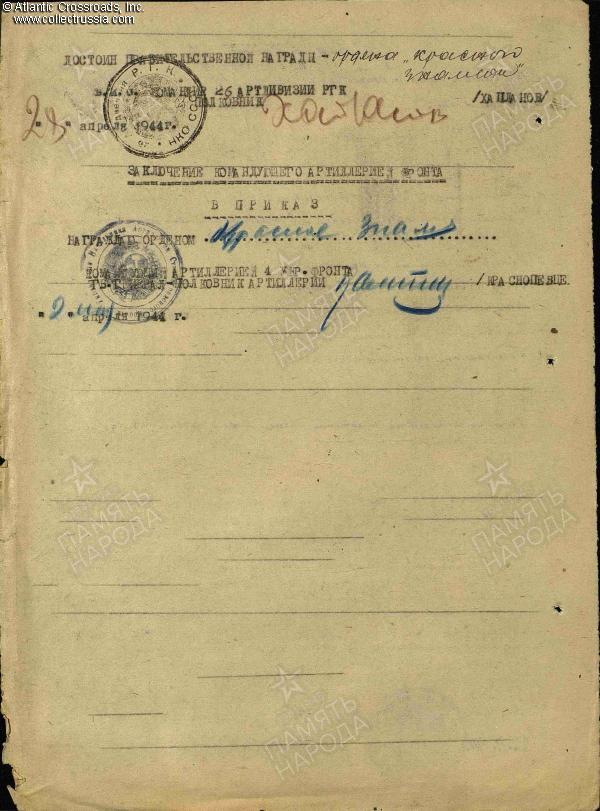 © Atlantic Crossroads, Inc.
www.collectrussia.com
ДОСТОИН ПРАВИТЕЛЬСТВЕННОЙ НАГРАДЫ - ордена "Красного
Знамени"
В.И.О. КОМАНДИР 26 АРТДИВИЗИИ РГК
ПОЛКОВНИК /ХАПЛАНОВ/
"28" апреля 1944 г.
НКО СССР
ЗАКЛЮЧЕНИЕ КОМАНДУЩЕГО АРТИЛЛЕРИЕЙ ФРОНТА
В ПРИКАЗ
НАГРАЖДЕН ОРДЕНОМ Красное Знамя
КОМАНДУЮЩИЙ АРТИЛЛЕРИЕЙ 4 УКР. ФРОНТА
ГВ. ГЕНЕРАЛ-ПОЛКОВНИК АРТИЛЛЕРИИ /КРАСНОПЕВЦЕ
"9" мая апреля 1944 г.
ПАМЯТЬ
НАРОДА
ПАМЯТЬ
НАРОДА
ПАМЯТЬ
НАРОДА
ПАМЯТЬ
НАРОДА
ПАМЯТЬ
НАРОДА
ПАМЯТЬ
НАРОДА